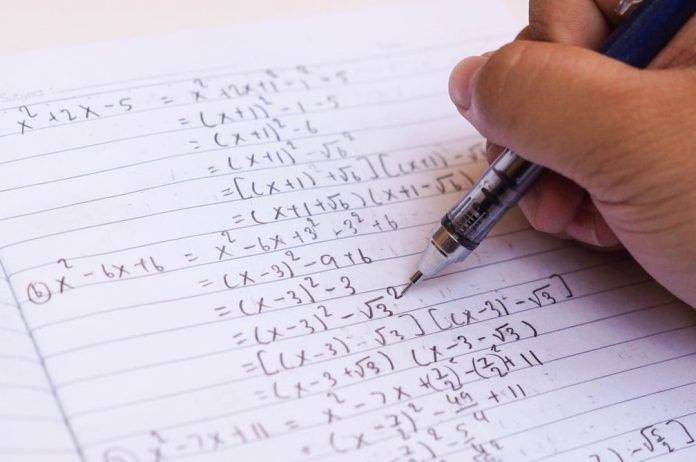 Subject
x² + 2x - 5 = x² + 2x + 1² - 1² - 5
= (x+1)² - 1 - 5
= (x+1)² - 6
= (x+1)² - √6²
= [(x+1) + √6] [(x+1) - √6
= (x+1+√6) (x+1-√6)
(b) x² - 6x + 6 = x² - 6x + 3² - 3² + 6
= (x-3)² - 9 + 6
= (x-3)² - 3
= (x-3)² - √3²
= [(x-3) - √3] [(x-3) - √3]
= (x-3+√3) (x-3-√3)
x² - 7x + 11 = x² - 7x + (7/2)² - (7/2)² + 11
= (x-7/2)² - 49/4 + 11
(x-7/2)² - 5/4